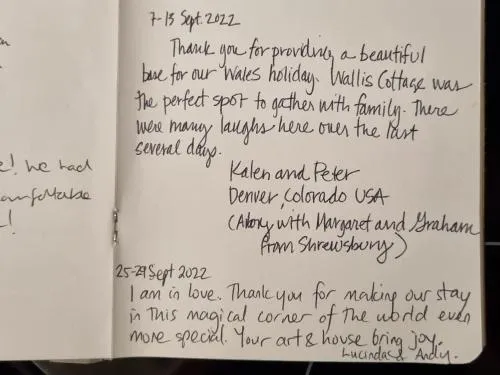 ! we had
comfortable
!
7-13 Sept. 2022
Thank you for providing a beautiful
base for our Wales holiday. Wallis Cottage was
the perfect spot to gather with family. There
were many laughs here over the last
several days.
Kalen and Peter
Denver, Colorado USA
(Along with Margaret and Graham
from Shrewsbury)
25-29 Sept 2022
I am in love. Thank you for making our stay
in this magical corner of the world even
more special. Your art & house bring joy.
Lucinda & Andy.